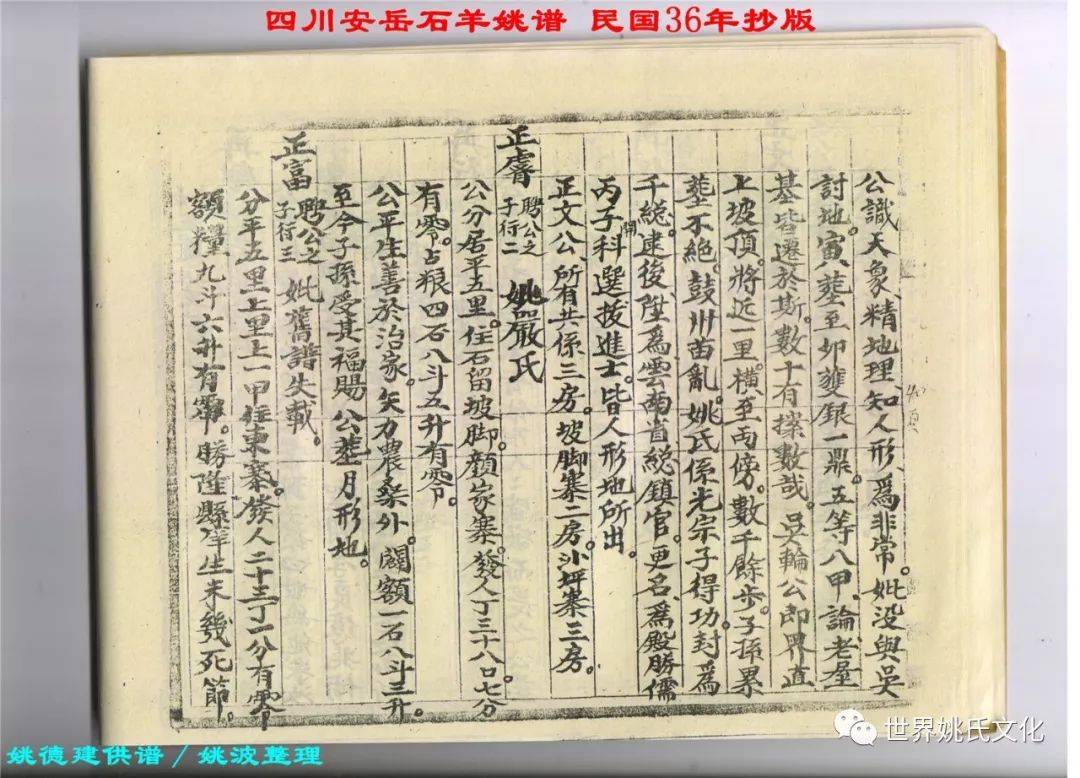 四川安岳石羊姚谱 民国36年抄版
公識天象、精地理知人形、爲非常。妣没與吳
討地。寅葬至卯葬銀一鼎。五等八甲、論老屋
基皆遷於斯。數十有探數哉。吳輪公即界直
上坡頂。將近一里。橫至両傍。數千餘步。子孫累
葬不絶。鼓州苗亂。姚氏係光宗子得功。封爲
千總。逮後陞爲雲南省総鎮官。更名、爲殿勝儒
丙子科開選拔進士。皆人形地所出。
正文公、所有共係三房。坡脚寨二房。沙坪寨三房。
正膚 聘公之子行二 妣嚴氏
公分居平五里。住石留坡脚。顔家寨。發人丁三十八口。七分
有零。占粮四石八斗五升有零。
公平生善於治家。矢力農桑外。閣額一石八斗三升。
至今子孫受其福賜 公葬月形地。
正富 聘公之子行三 妣舊譜失載。
分平五里上里上一甲住東寨。發人二十三丁一分有零
額糧九斗六升有零。勝陞縣羊生未幾死節。
姚德建供谱/姚波整理
世界姚氏文化